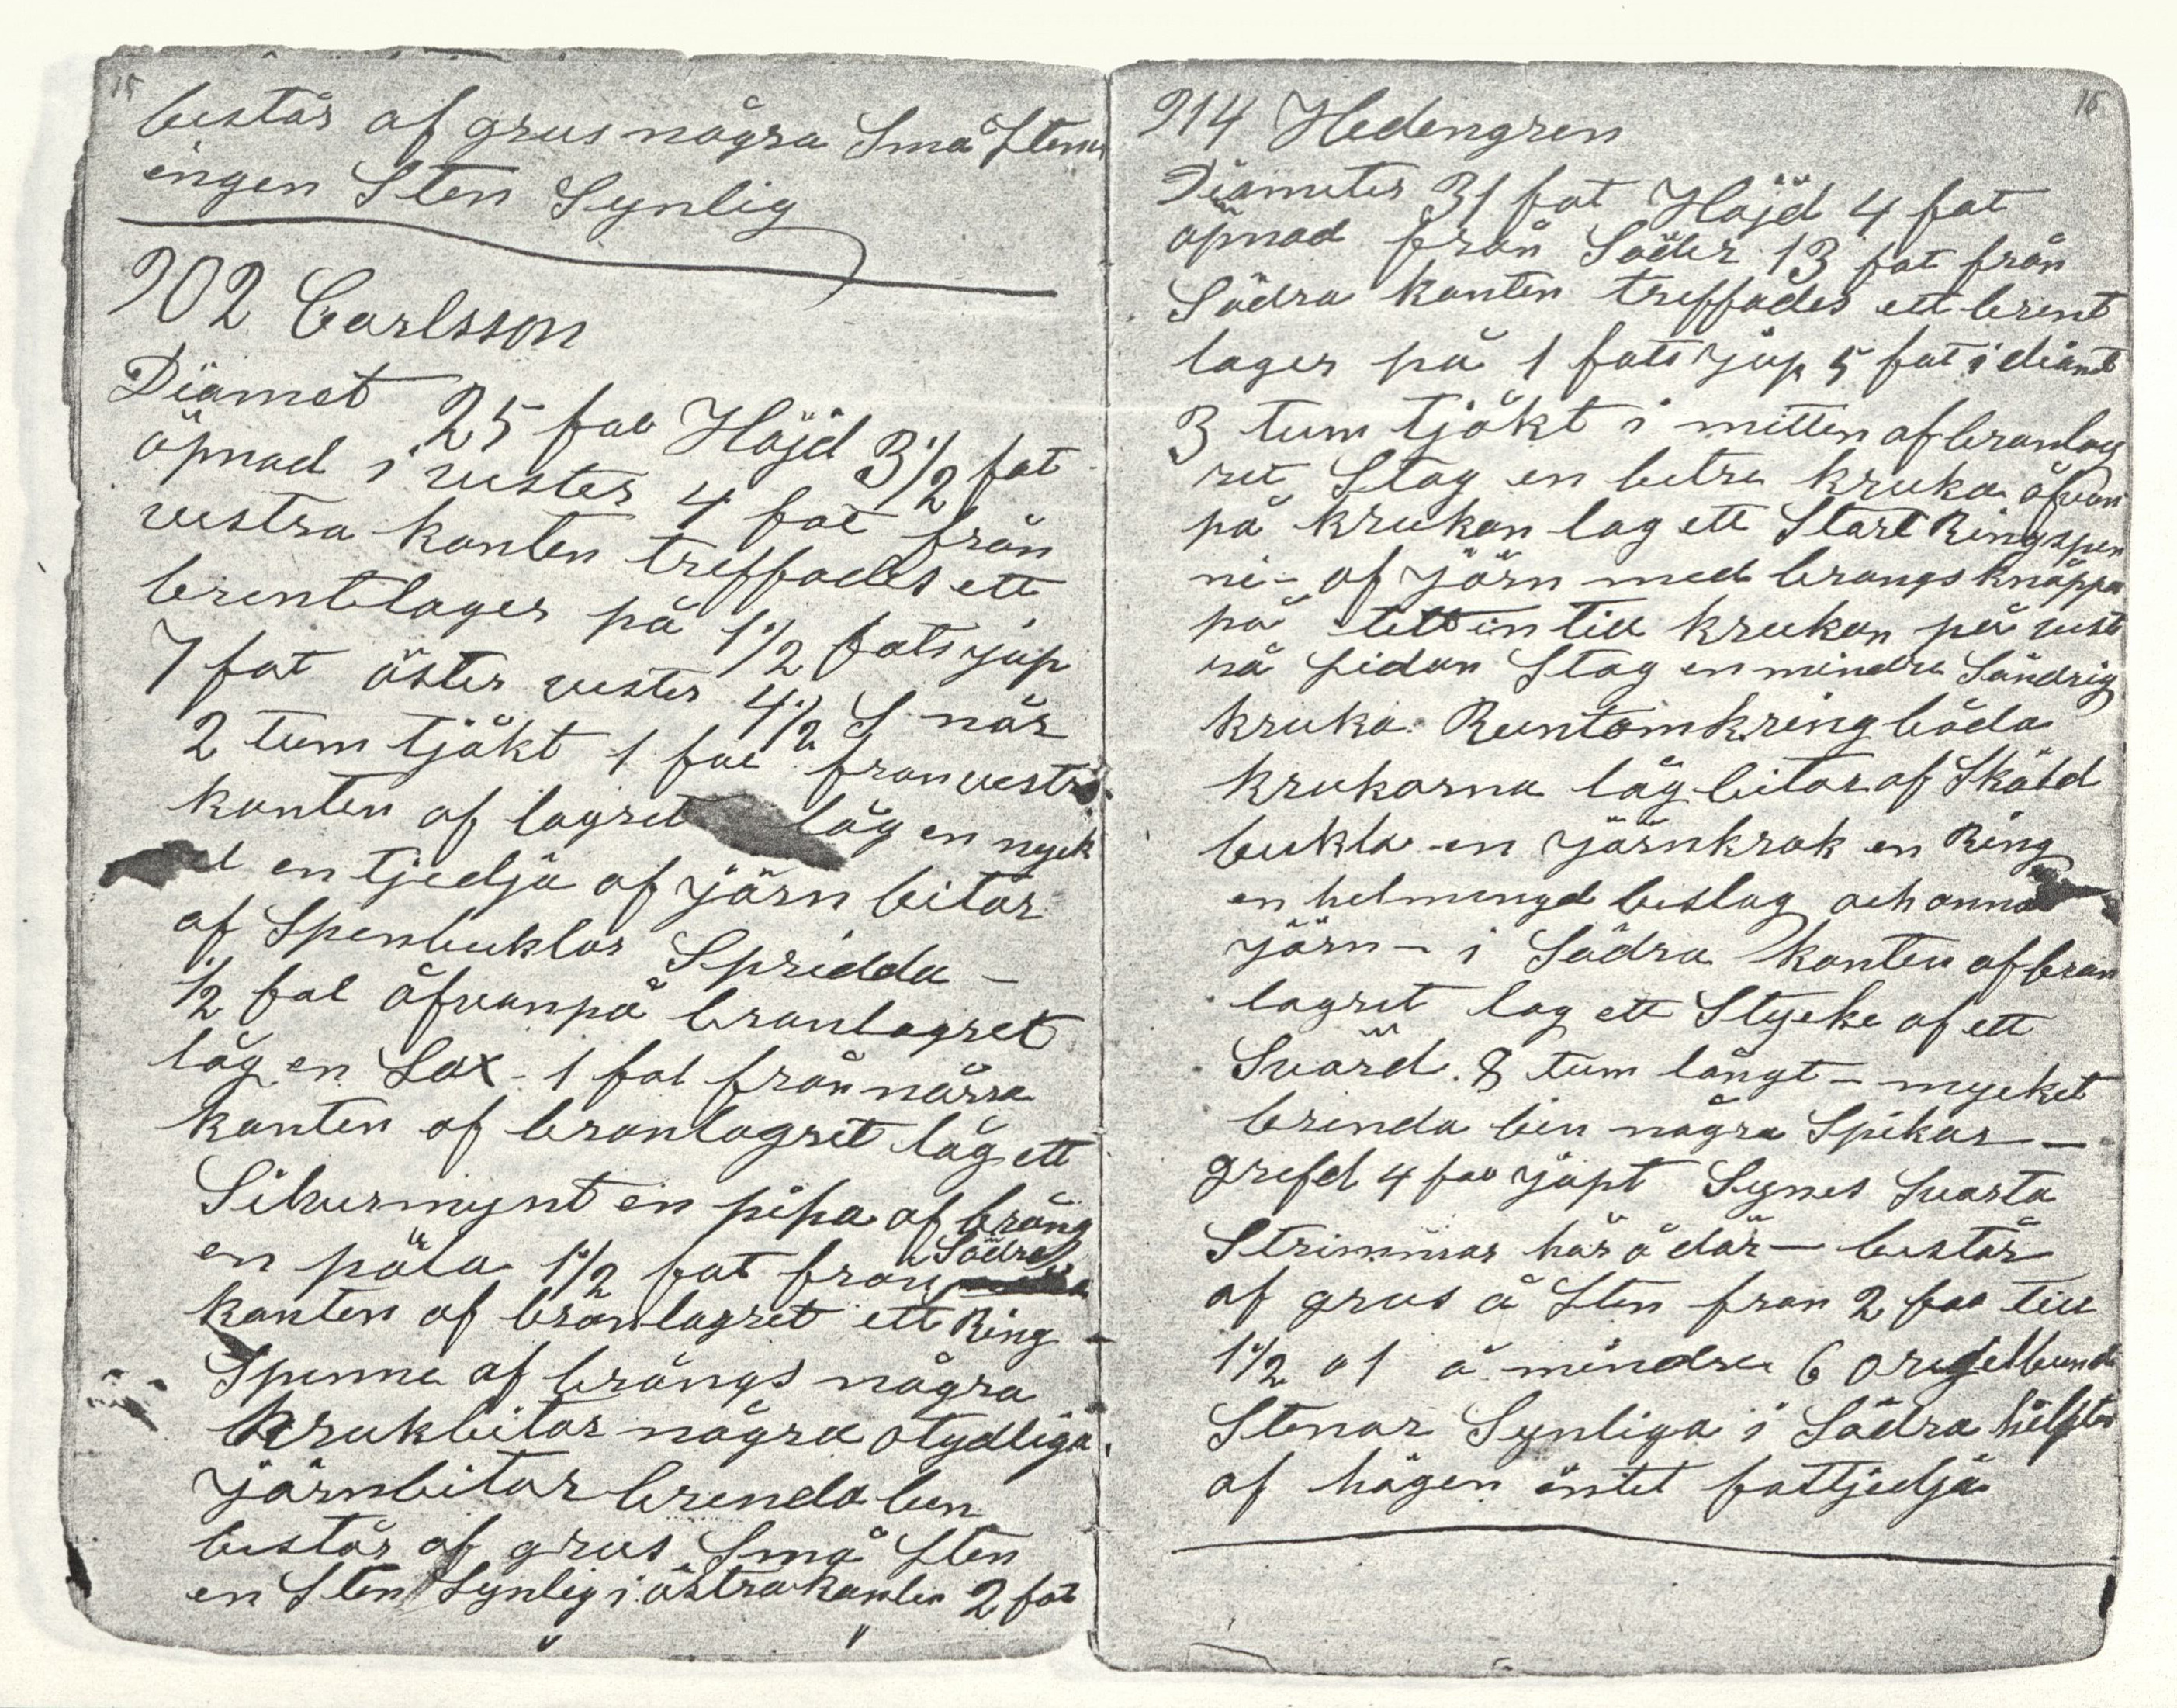 15
består af grus några Små Stenar
ingen Sten Synlig
902 Carlsson
Diamet 25 fot Höjd 3 1/2 fot
öpnad i vester 4 fot från
vestra kanten treffades ett
brentlager på 1 1/2 fots jup
7 fot öster vester 4 1/2 S når
2 tum tjökt 1 fot fran vestra
kanten af lagret låg en nyck
en tjedja af järn bitar
af Spenbucklor Spridda -
1/2 fot åfvanpå branlagret
låg en Sax - 1 fot från norra
kanten af branlagret låg ett
Silvermynt en pipa af brång
en påla 1 1/2 fot fran Södra
kanten af bronlagret ett Ring
Spenne af brångs några
krukbitar några otydliga
järnbitar brenda ben
består af grus Små Sten
en Sten Synlig i östra kanten 2 fot
16
914 Hedengren
Diameter 31 fot Höjd 4 fot
öpnad från Söder 13 fot från
Södra kanten treffades ett brent
lager på 1 fots jup 5 fot i diamt
3 tum tjökt i mitten af branlag
ret Stog en betre kruka åfvan
på krukan lag ett Stort Ringspen
ne - af järn med brangs knäppa
på tett in till krukan på vest
ra sidan Stog en mindre Söndrig
kruka. Runtomkring båda
krukorna låg bitar af Sköld
buckla en järnkrok en Ring
en helmengd beslag och annat
järn - i Södra kanten af bran
lagret lag ett Stycke af ett
Svärd. 8 tum långt - mycket
brenda ben några Spikar -
grefd 4 fot jupt Synes Svarta
Strimmor här å där - består
af grus å Sten fran 2 fot till
1 1/2 o 1 å mindre 6 oregelbund
Stenar Synliga i Södra hälften
af högen äntet fottjedja